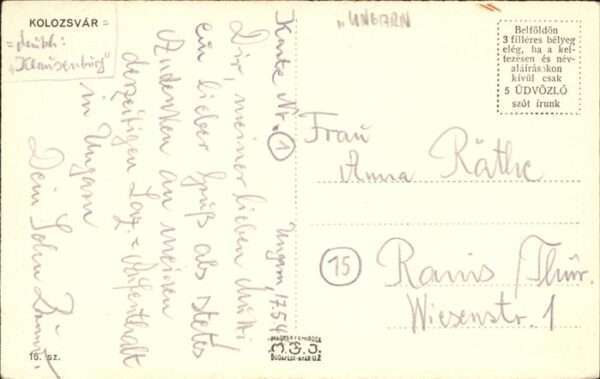 KOLOZSVÁR =
= deutsch:
"Klausenburg"
"UNGARN
Belföldön
3 filléres bélyeg
elég, ha a kel-
tezésen és név-
aláírás(ok)on
kívül csak
5 ÜDVÖZLŐ
szót írunk
Karte Nr. 1
Ungarn, 17.5.4
Dir, meiner lieben Mutti
ein lieber Gruß als stetes
Andenken an meinen
derzeitigen Laz-Aufenthalt
in Ungarn
Dein Sohn
Frau
Anna Räthe
15
Ranis/Thür.
Wiesenstr. 1
16. sz.
M.F.I.